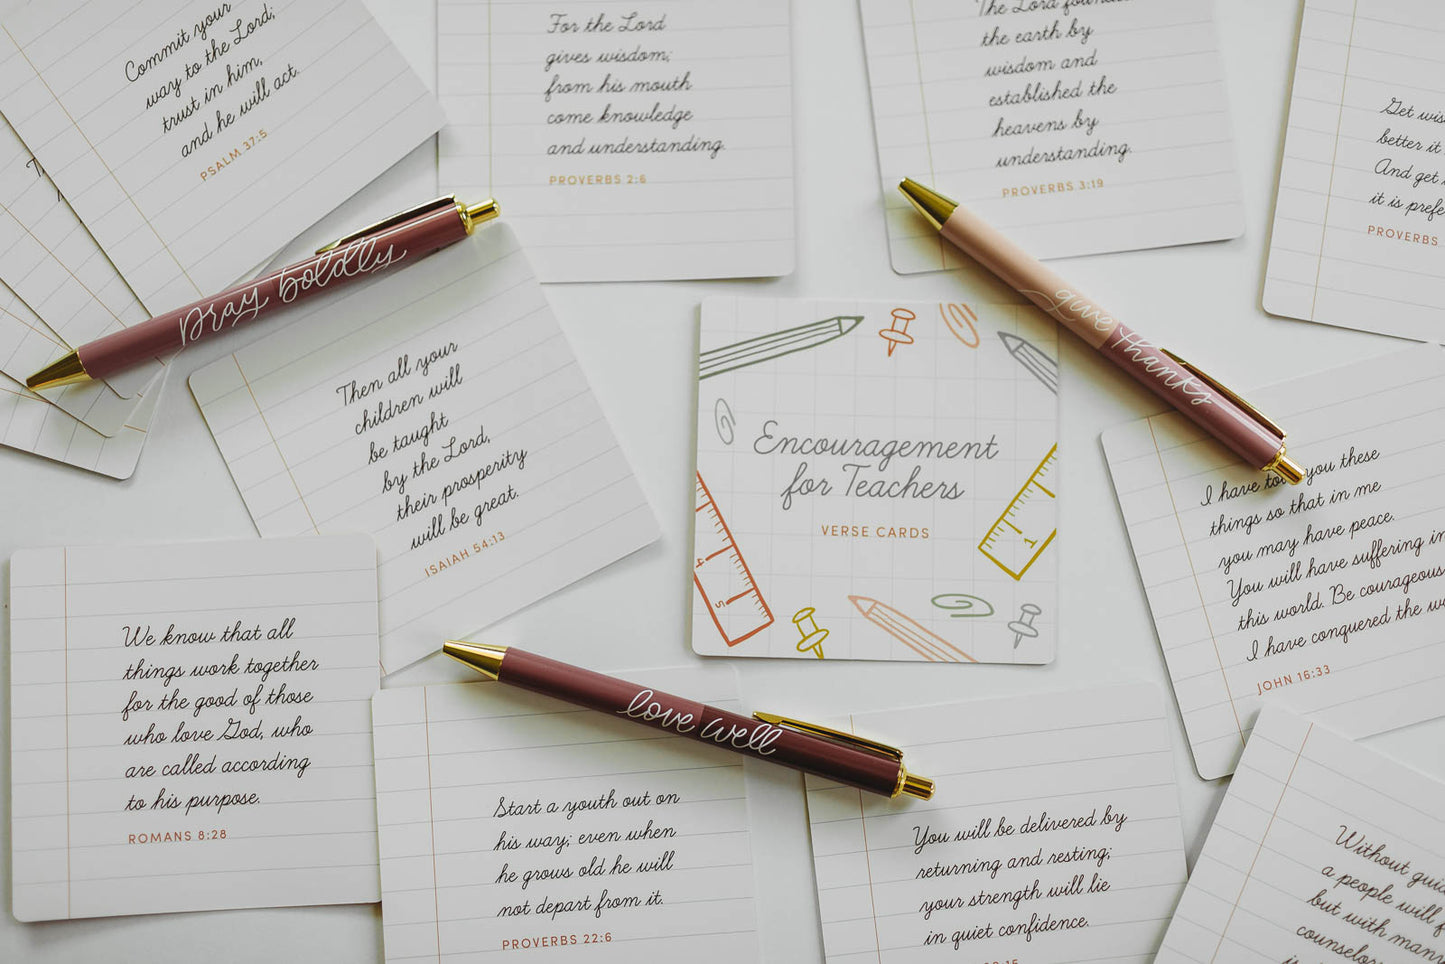 Commit your
way to the Lord;
trust in him,
and he will act.
PSALM 37:5
For the Lord
gives wisdom;
from his mouth
come knowledge
and understanding.
PROVERBS 2:6
The Lord
the earth by
wisdom and
established the
heavens by
understanding.
PROVERBS 3:19
Get
better it
And get
it is
PROVERBS
pray boldly
give thanks
Then all your
children will
be taught
by the Lord,
their prosperity
will be great.
ISAIAH 54:13
Encouragement
for Teachers
VERSE CARDS
1
4
5
I have you these
things so that in me
you may have peace.
You will have suffering in
this world. Be courageous
I have conquered the
JOHN 16:33
We know that all
things work together
for the good of those
who love God, who
are called according
to his purpose.
ROMANS 8:28
love well
Start a youth out on
his way; even when
he grows old he will
not depart from it.
PROVERBS 22:6
You will be delivered by
returning and resting;
your strength will lie
in quiet confidence.
Without
a people will
but with